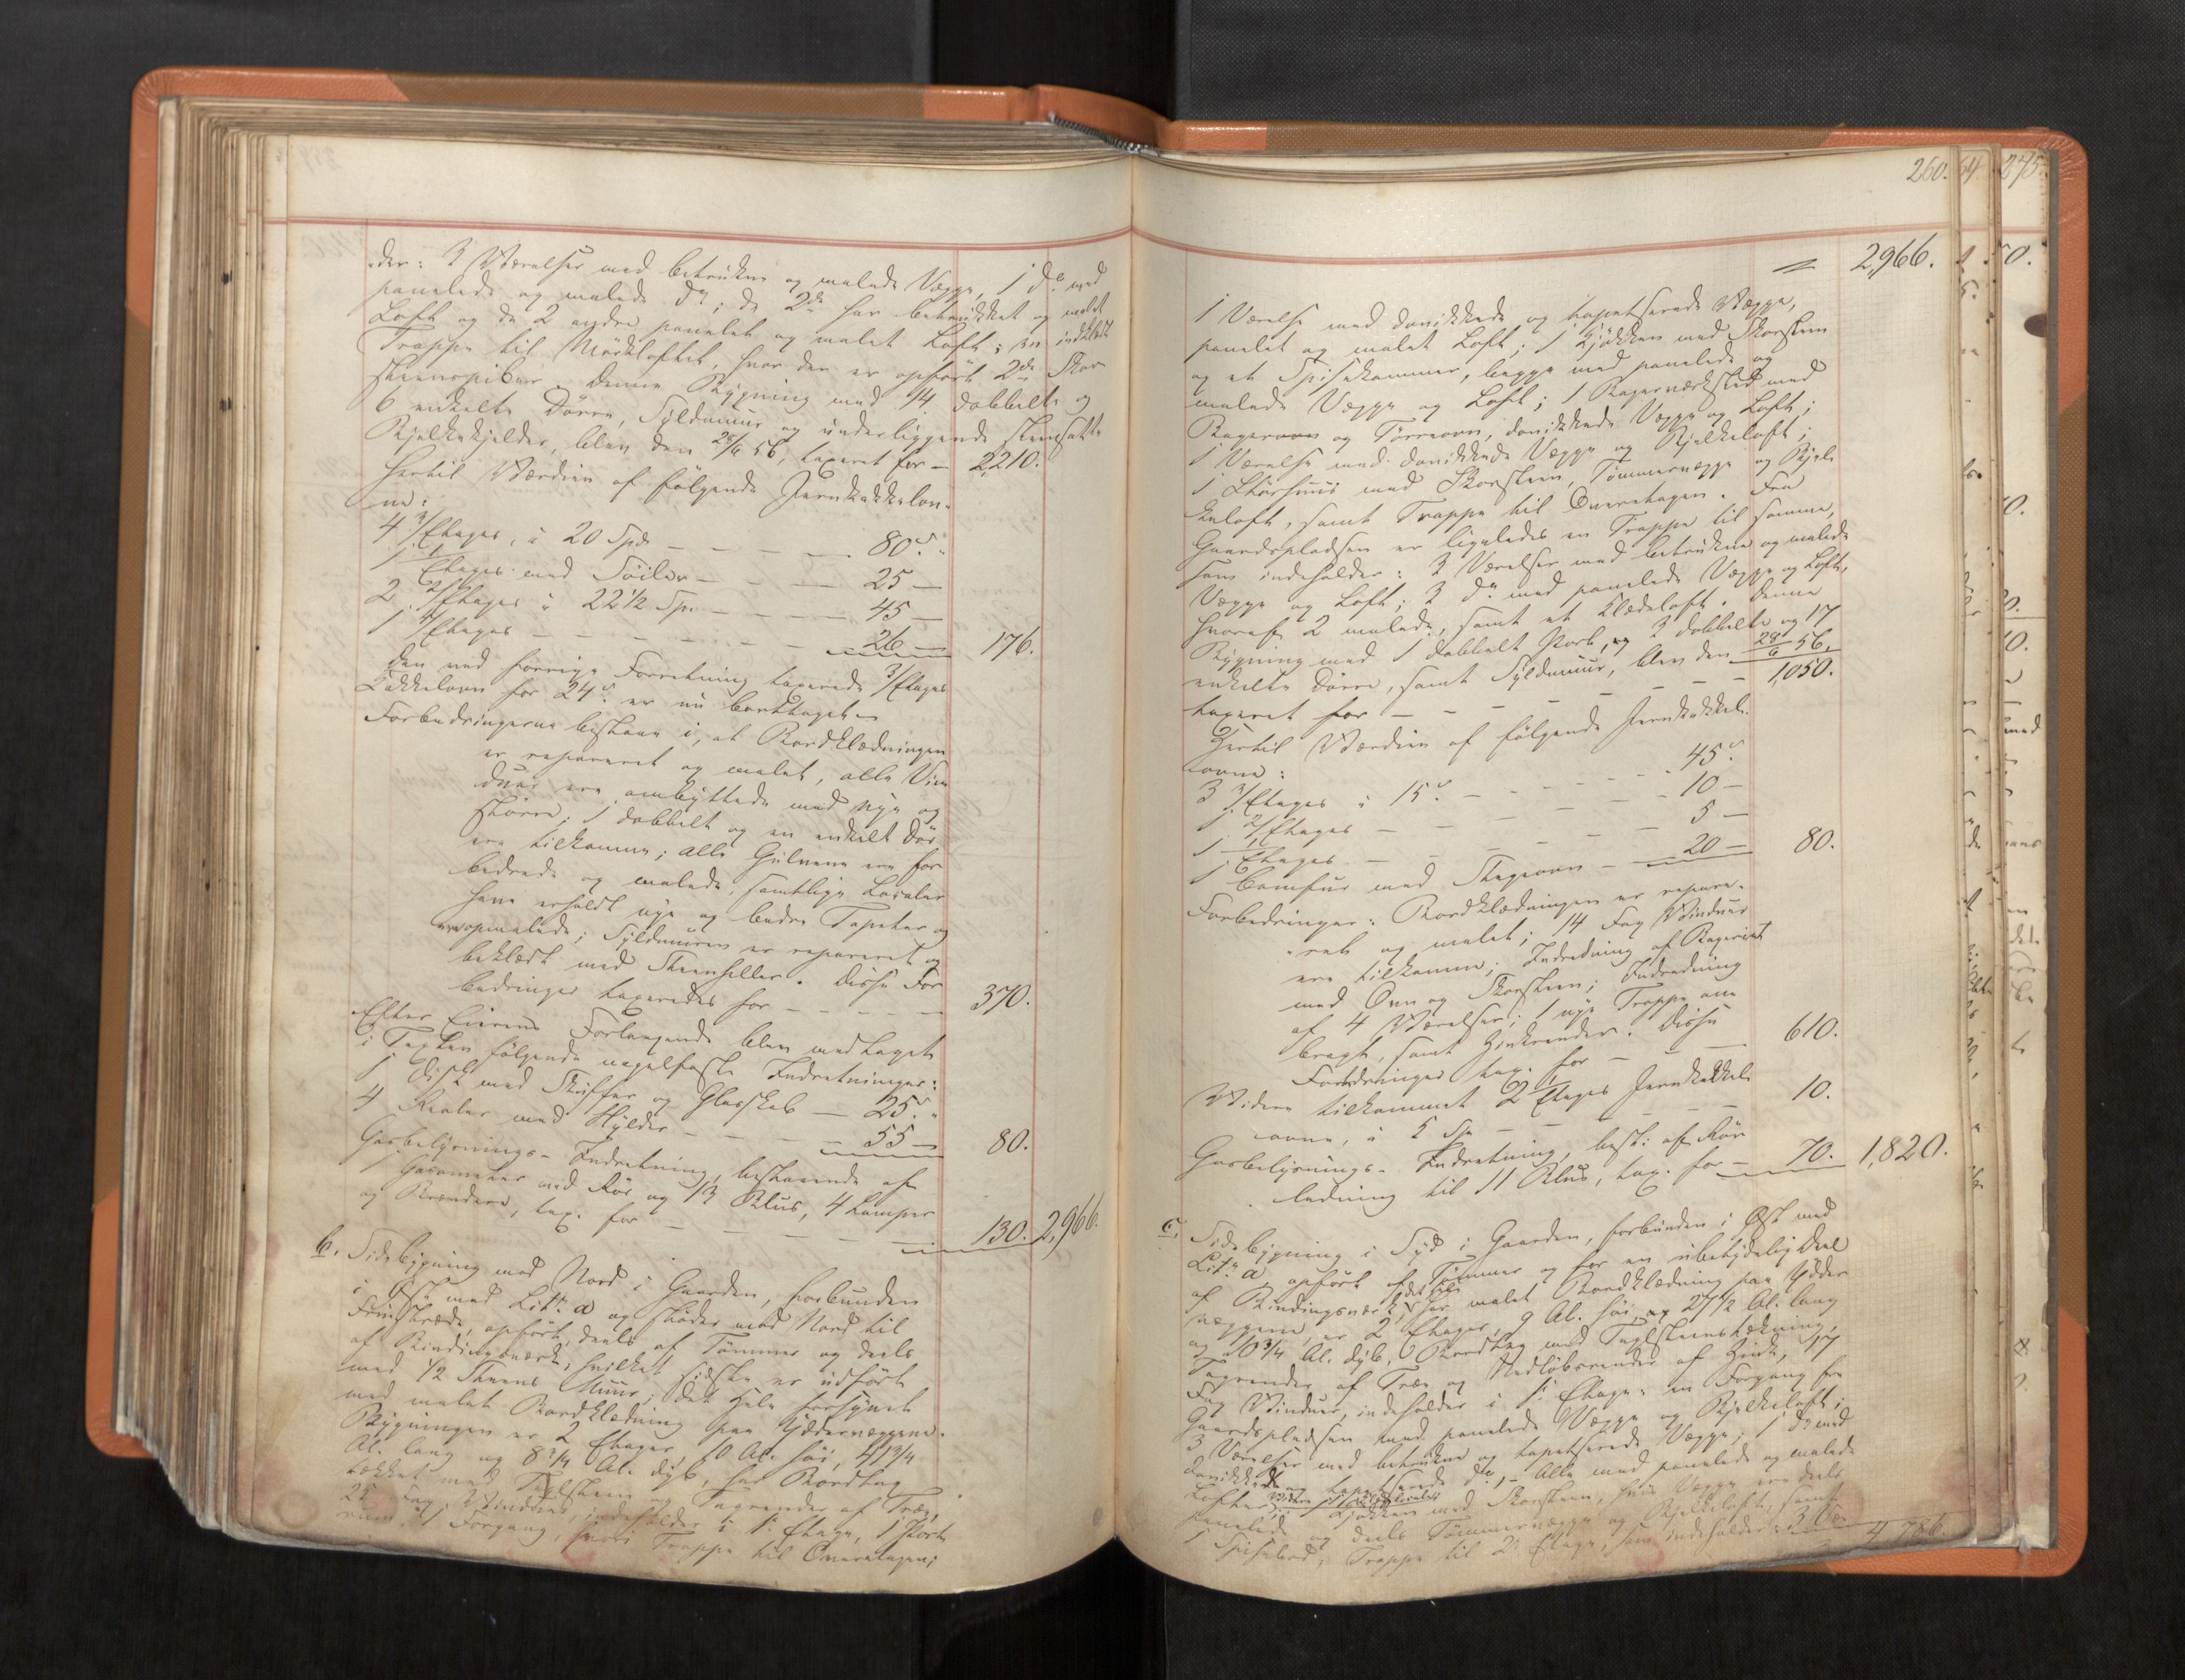 der: 3 Værelser med betrukne og malede Vægge, 1 do med
panelede og malede do; de 2de har betrukket og malet
Loft og de 2 andre panelet og malet Loft; en indklædt
Trappe til Mørkloftet, hvor der er opført 2de Skor
steenspiber. Denne Bygning med 14 dobbelte og
6 enkelte Dørre, Syldmuur og underliggende steensatte
Bjelkekjelder, blev den 28/6 56, taxeret for — 2,210.
Hertil Værdien af følgende Jernkakkelov-
ne:
4 3/Etages, à 20 Spd — — — — 80 S.
1 1/Etages med Søiler — — — 25 —
2 2/Etages à 22 1/2 Sp. — — — — 45 —
1 4/Etages — — — — — — 26 — 176.
Den ved forrige Forretning taxerede 3/Etages
Kakkelovn for 24 S. er nu borttaget.
Forbedringerne bestaae i, at Bordklædningen
er repareret og malet, alle Vin
duer ere ombyttede med nye og
større; 1 dobbelt og en enkelt Dør
ere tilkomne; alle Gulvene ere for
bedrede og malede, samtlige Localer
have erholdt nye og bedre Tapeter og
ere opmalede; Syldmuren er repareret og
beklædt med Steenheller. Disse For
bedringer taxeredes for — — — — — 370.
Efter Eierens Forlangende blev medtaget
i Taxten følgende nagelfaste Indretninger:
1 Disk med Skuffer og Glasskab — 25 S.
4 Reoler med Hylder — — — — 55 — 80.
Gasbelysnings-Indretning, bestaaende af
1 Gasometer med Rør og 13 Blus, 4 Lamper
og Brændere, tax. for — — — — — 130. 2,966.
b. Sidebygning mod Nord i Gaarden, forbunden
i Øst med Litr. a og støder mod Nord til
opført deels af Tømmer og deels
af Bindingsværk, hvilket sidste er udført
med 1/2 Steens Muur; det Hele forsynet
med malet Bordklædning paa Yddervæggene.
Bygningen er 2 Etager, 10 Al. høi, 41 3/4
Al. lang og 8 3/4 Al. dyb, har Bordtag
tækket med Tagsteen og Tagrender af Træ,
25 Fag Vinduer, indeholder i 1 Etage, 1 Port
rum, 1 Forgang, hvori Trappe til Overetagen;
260.
64
275.
— 2,966.
1 Værelse med danikkede og tapetserede Vægge,
panelet og malet Loft; 1 Kjøkken med Skorsteen
og et Spisekammer, begge med panelede og
malede Vægge og Loft; 1 Bagerværksted med
Bagerovn og Tørreovn, danikkede Vægge og Loft;
1 Værelse med danikkede Vægge og Bjelkeloft;
1 med Skorsteen, Tømmervægge og Bjel
keloft, samt Trappe til Overetagen. Fra
Gaardspladsen er ligeledes en Trappe til samme,
som indeholder: 3 Værelser med betrukne og malede
Vægge og Loft; 3 do med panelede Vægge og Loft,
hvoraf 2 malede, samt et Klædeloft. Denne
Bygning med 1 dobbelt Port, og 3 dobbelte og 17
enkelte Dørre, samt Syldmuur, blev den 28/6 56,
taxeret for — — — — — — 1,050.
Hertil Værdien af følgende Jernkakkel-
ovne:
3 3/Etages à 15 S. — — — — 45 S.
1 2/Etages — — — — — 10 —
1 1/Etages — — — — — 5 —
1 Comfur med Stegeovn — 20 — 80.
Forbedringer: Bordklædningen er repare-
ret og malet; 14 Fag Vinduer
ere tilkomne; Indredning af Bageriet
med Ovn og Skorsteen; Indredning
af 4 Værelser; 1 nye Trappe an
bragt, samt Zinkrender. Disse
Forbedringer tax. for — — — 610.
Videre tilkommet 2 Etages Jernkakkel-
ovne, à 5 Sp — — — — — 10.
Gasbelysnings-Indretning, best: af Rør
ledning til 11 Blus, tax. for — 70. 1,820.
c, Sidebygning i Syd i Gaarden, forbunden i Øst med
Litr. a, opført af Tømmer og for en ubetydelig Deel
af Bindingsværk, har malet Bordklædning paa Ydder
væggene, er 2 Etager, 9 Al. høi og 27 1/2 Al. lang
og 10 3/4 Al. dyb, Bordtag med Taglsteenstækning,
Tagrender af Træ og Nedløbsrender af Zink, 17
Fag Vinduer, indeholder i 1 Etage: en Forgang fra
Gaardspladsen med panelede Vægge og Bjelkeloft;
3 Værelser med betrukne og tapetserede Vægge; 1 do med
danikkede og tapetserede do, — Alle med panelede og malede
Lofter; 1 Kjøkken med Skorsteen, hvis Vægge ere deels
panelede og deels Tømmervægge og Bjelkeloft, samt
1 Spisebod; Trappe til 2 Etage, som indeholder: 3 Væ-
4,786.